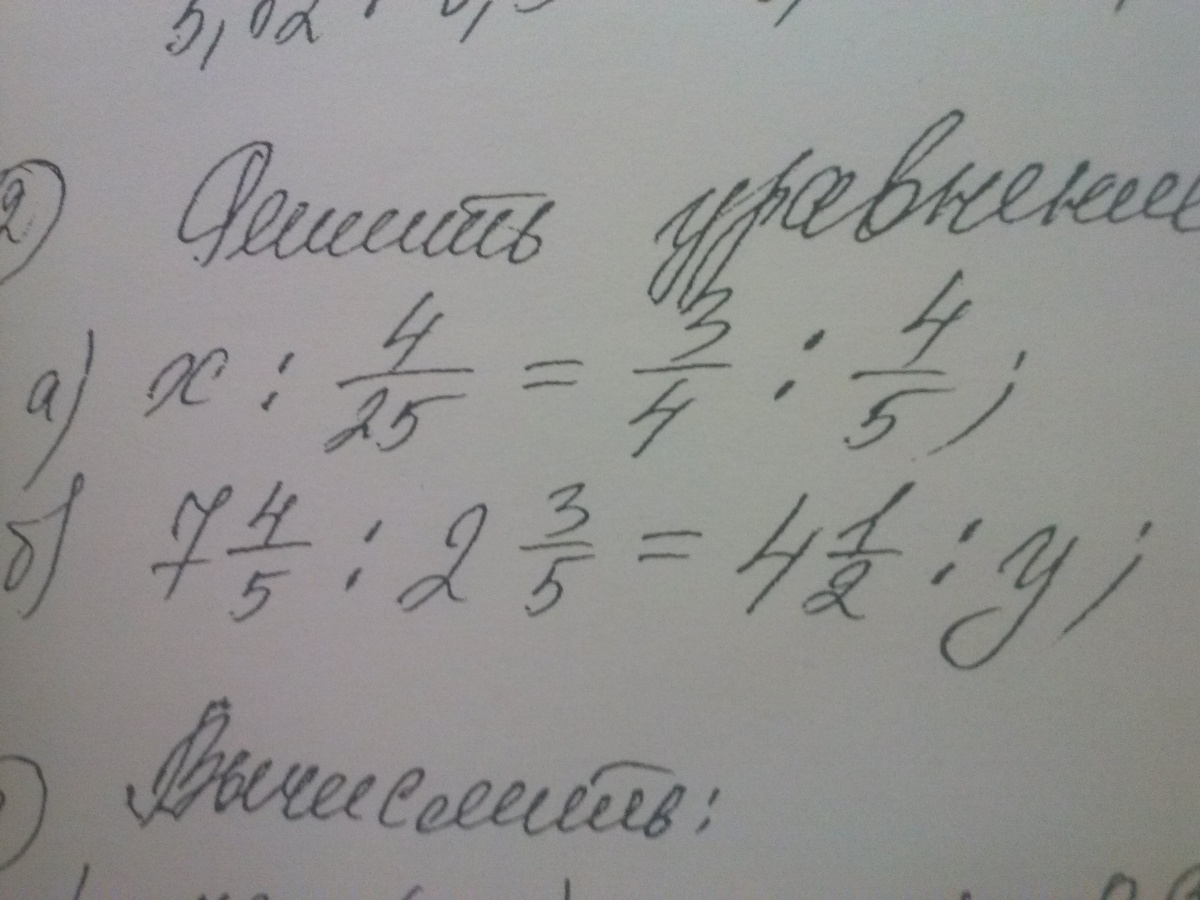 2) Решить уравнение
а) x : 4/25 = 3/4 : 4/5 ;
б) 7 4/5 : 2 3/5 = 4 1/2 : y ;
Вычислить: